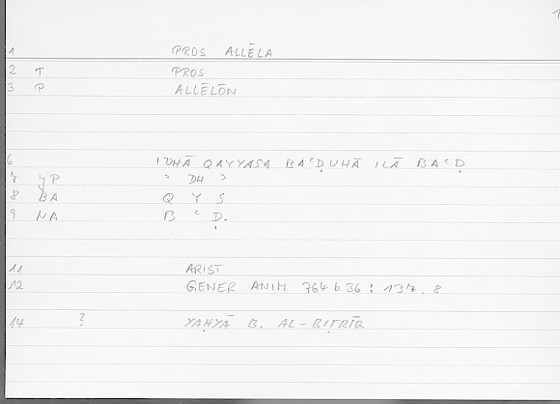 1 PROS ALLĒLA
2 T PROS
3 P ALLĒLŌN
6 IDHĀ QAYYASA BAʿḌUHĀ ILĀ BAʿḌ
7 YP ʾ DH ʾ
8 BA Q Y S
9 NA B ʿ Ḍ.
11 ARIST
12 GENER ANIM 764 b 36 : 137.8
14 ? YAḤYĀ B. AL-BIṬRĪQ